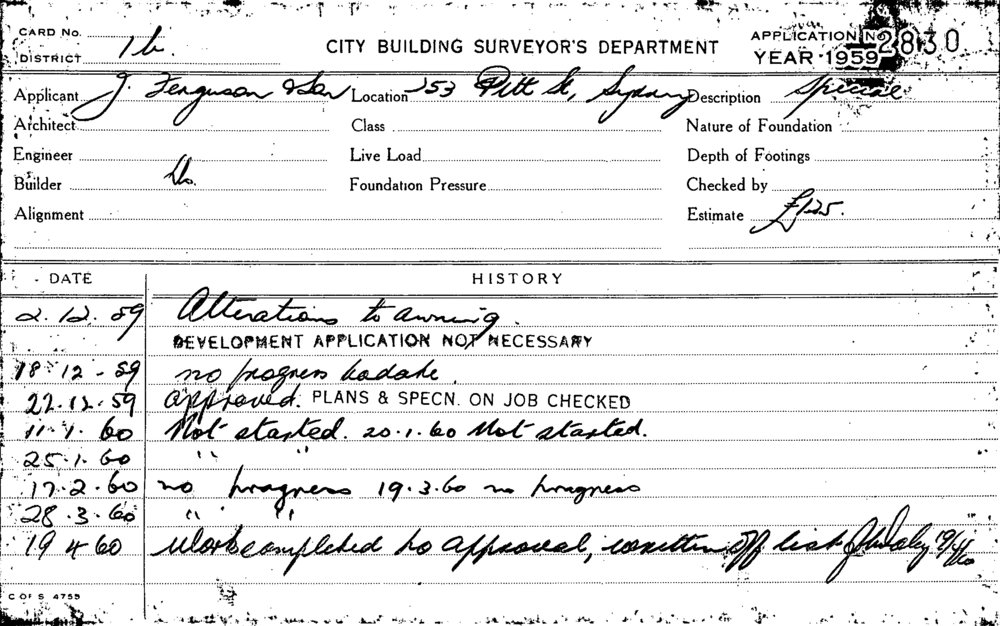 CARD No. 1b.
DISTRICT
CITY BUILDING SURVEYOR'S DEPARTMENT
APPLICATION No 2830
YEAR 1959
Applicant J. Ferguson & Son Location 253 Pitt St, Sydney Description Special
Architect Class Nature of Foundation
Engineer Live Load Depth of Footings
Builder Do. Foundation Pressure Checked by
Alignment Estimate £125.
DATE HISTORY
2.12.59 Alterations to awning.
DEVELOPMENT APPLICATION NOT NECESSARY
18.12-59 no progress to date.
22.12.59 approved. PLANS & SPECN. ON JOB CHECKED
11.1.60 Not started. 20.1.60 Not started.
25.1.60 " "
17.2.60 no progress 19.3.60 no progress
28.3.60 " "
19 4 60 Work completed to approval, written off list 19/4/60
C OF S 4755